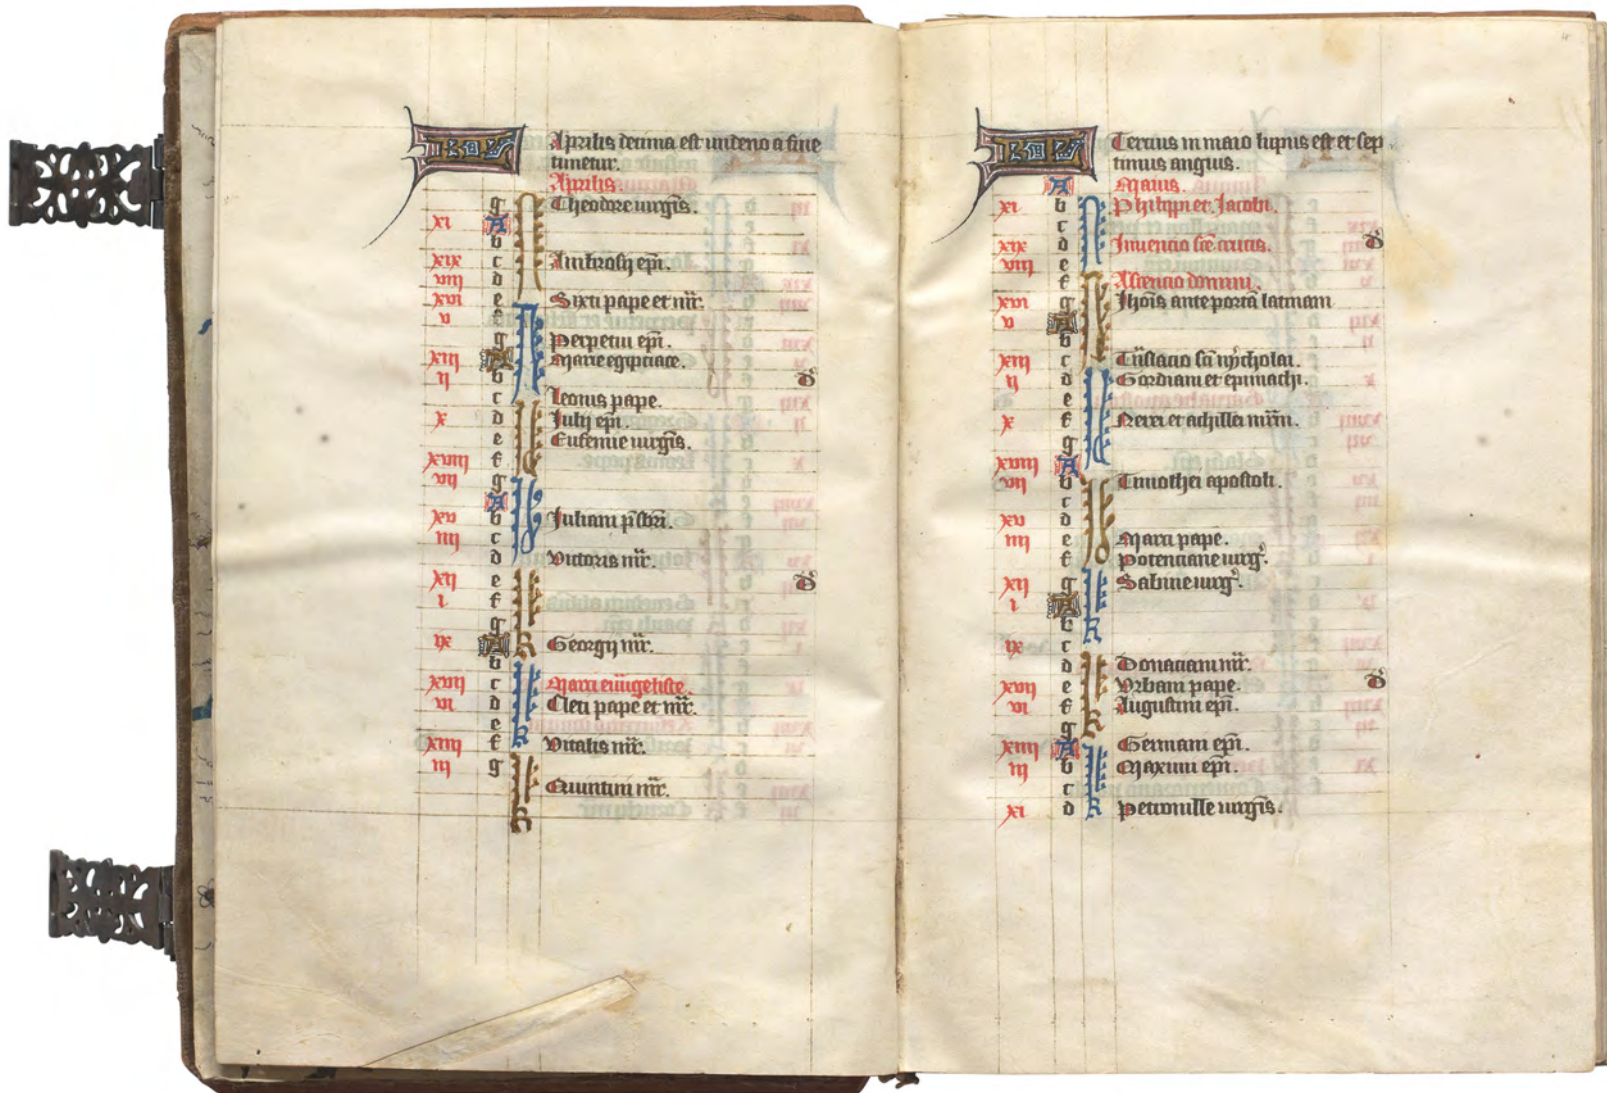 KL Aprilis decima est undeno a fine
timetur.
Aprilis.
g Theodore virgīs.
xi A
b
xix c Ambrosij ep̄i.
viii d
xvi e Sixti pape et mr̄.
v f
g Perpetui ep̄i.
xiii A Marie egiptiace.
ii b d
c Leonis pape.
x d Julij ep̄i.
e Eufemie virgīs.
xviii f
vii g
A
xv b Juliani p̄sbri.
iiii c
d Victoris mr̄.
xii e d
i f
g
ix A Georgij mr̄.
b
xvii c Marci euāgeliste.
vi d Cleti pape et mr̄.
e
xiiii f Vitalis mr̄.
iii g
Quintini mr̄.
KL Tercius in maio lupus est et sep
timus anguis.
A Maius.
xi b Philippi et Jacobi.
c
xix d Inuencio sc̄e crucis. d
viii e
f Ascencio domini.
xvi g Jhōis ante portā latinam
v A
b
xiii c sc̄i nycholai.
ii d Gordiani et epimachi.
e
x f Nerei et achillei mr̄m.
g
xviii A
vii b Timothei apostoli.
c
xv d
iiii e Marci pape.
f Potenciane virg.
xii g Sabine virg.
i A
b
ix c
d Donaciani mr̄.
xvii e Vrbani pape. d
vi f Augustini ep̄i.
g
xiiii A Germani ep̄i.
iii b Maximi ep̄i.
c
xi d Petronille virgīs.